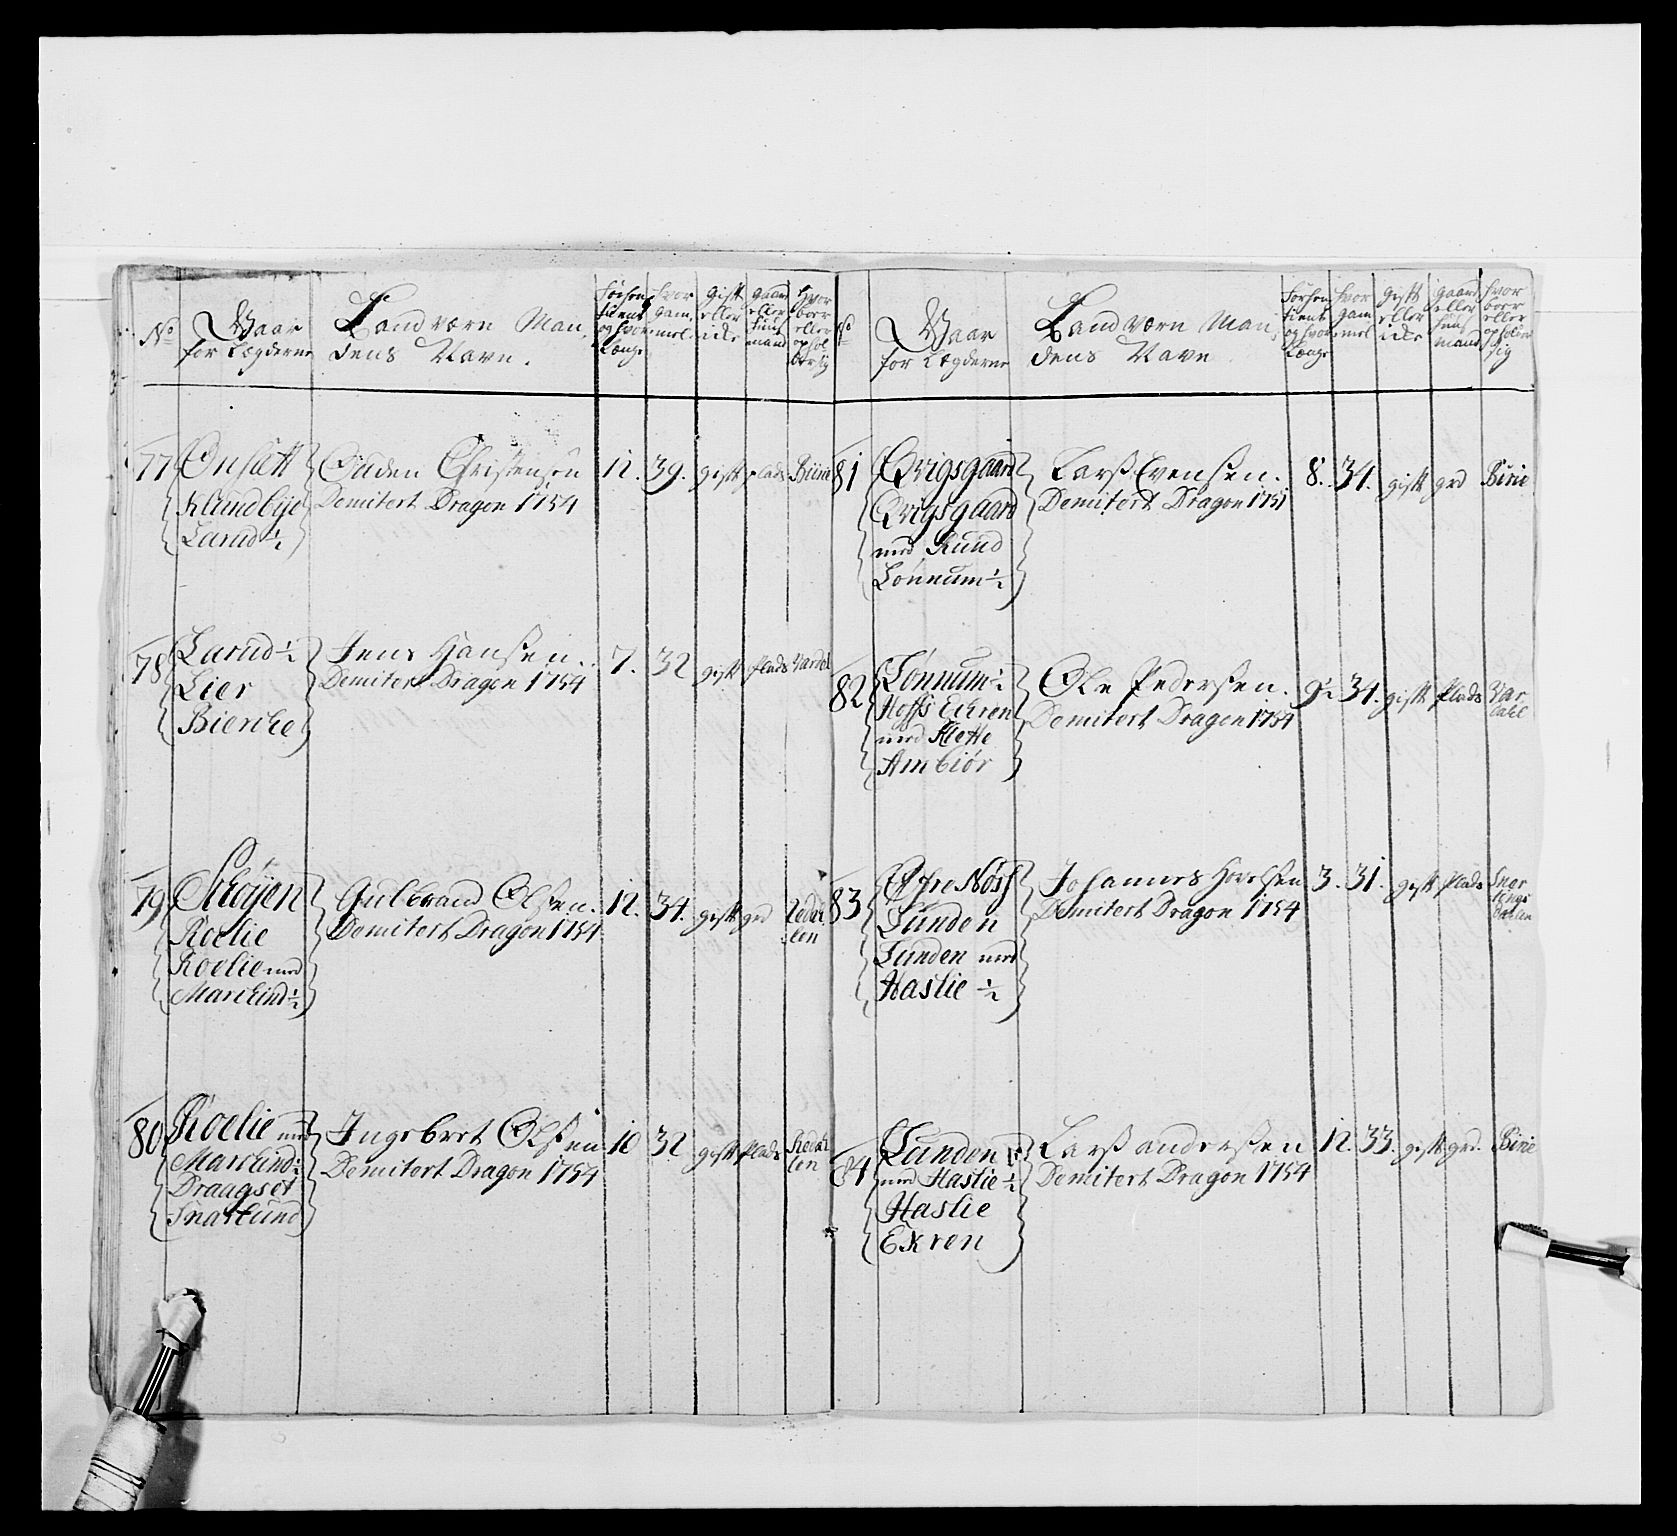 No
Waar
for Lægderne
Landværn Man,
dens Navn.
Før hen
tient
og hvor
Længe
hvor
gam,
mel
gift
eller
icke
gaard
eller
huus
mand
Hvor
boer
eller
ophol
der sig
77
Onsætt
Klundbye
Larud ½
Ouden Christensen
Demitert Dragon 1754
12. 39. gift plads Birie
78
Larud ½
Lier
Biercke
Jens Hansen.
Demitert Dragon 1754
7. 32 gift plads Vardal
79
Skøyen
Roelie
Roelie med
Marckind ½
Gulbrand Olsen.
Demitert Dragon 1754
12. 34. gift grd Reda
len
80
Roelie med
Marckind ½
Draagset
Snarlund
Ingebret Olsen
Demitert Dragon 1754
10 32 gift plads Reda
len
No
Waar
for Lægderne
Landværn Man,
dens Navn
Før hen
tient
og hvor
Længe
hvor
gam
mel
gift
eller
icke
gaard
eller
huus
mand
hvor
boer
eller
opholder
sig
81
Qvigsgaard
Qvigsgaard
med Rund
Lønnum ½
Larss Evensen.
Demitert Dragon 1751
8. 34. gift grd Birie
82
Lønnum ½
Hoffs Eckren
med Klette
Ambiør
Ole Pedersen.
Demitert Dragon 1754
9½ 34. gift plads Var
dahl
83
Øfre Nøss
Sünden
Sünden med
Haslie ½
Johannes Hovelsen
Demitert Dragon 1754
3. 31. gift plads Sner
tings
dalen
84
Sünden
med Haslie ½
Haslie
Ekren
Larss andersen
Demitert Dragon 1754
12. 33. gift grd. Birie